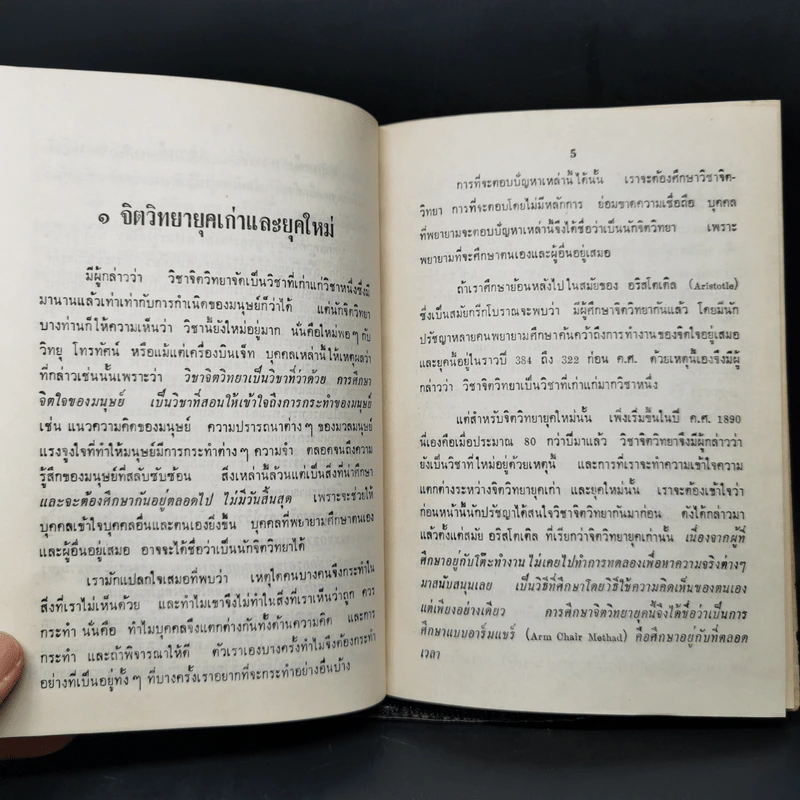 ๑ จิตวิทยายุคเก่าและยุคใหม่
มีผู้กล่าวว่า วิชาจิตวิทยาจัดเป็นวิชาที่เก่าแก่วิชาหนึ่งซึ่งมี
มานานแล้วเท่าเท่ากับการกำเนิดของมนุษย์ก็ว่าได้ แต่นักจิตวิทยา
บางท่านก็ให้ความเห็นว่า วิชานี้ยังใหม่อยู่มาก นั่นคือใหม่พอๆ กับ
วิทยุ โทรทัศน์ หรือแม้แต่เครื่องบินเจ็ท บุคคลเหล่านี้ให้เหตุผลว่า
ที่กล่าวเช่นนั้นเพราะว่า วิชาจิตวิทยาเป็นวิชาที่ว่าด้วย การศึกษา
จิตใจของมนุษย์ เป็นวิชาที่สอนให้เข้าใจถึงการกระทำของมนุษย์
เช่น แนวความคิดของมนุษย์ ความปรารถนาต่างๆ ของมวลมนุษย์
แรงจูงใจที่ทำให้มนุษย์มีการกระทำต่างๆ ความจำ ตลอดจนถึงความ
รู้สึกของมนุษย์ที่สลับซับซ้อน สิ่งเหล่านี้ล้วนแต่เป็นสิ่งที่น่าศึกษา
และจะต้องศึกษากันอยู่ตลอดไป ไม่มีวันสิ้นสุด เพราะจะช่วยให้
บุคคลเข้าใจบุคคลอื่นและตนเองยิ่งขึ้น บุคคลที่พยายามศึกษาตนเอง
และผู้อื่นอยู่เสมอ อาจจะได้ชื่อว่าเป็นนักจิตวิทยาได้
เรามักแปลกใจเสมอที่พบว่า เหตุใดคนบางคนจึงกระทำใน
สิ่งที่เราไม่เห็นด้วย และทำไมเขาจึงไม่ทำในสิ่งที่เราเห็นว่าถูก ควร
กระทำ นั่นคือ ทำไมบุคคลจึงแตกต่างกันทั้งด้านความคิด และการ
กระทำ และถ้าพิจารณาให้ดี ตัวเราเองบางครั้งทำไมจึงต้องกระทำ
อย่างที่เป็นอยู่ทั้งๆ ที่บางครั้งเราอยากที่จะกระทำอย่างอื่นบ้าง
5
การที่จะตอบปัญหาเหล่านี้ได้นั้น เราจะต้องศึกษาวิชาจิต-
วิทยา การที่จะตอบโดยไม่มีหลักการ ย่อมขาดความเชื่อถือ บุคคล
ที่พยามจะตอบปัญหาเหล่านี้จึงได้ชื่อว่าเป็นนักจิตวิทยา เพราะ
พยายามที่จะศึกษาตนเองและผู้อื่นอยู่เสมอ
ถ้าเราศึกษาย้อนหลังไปในสมัยของ อริสโตเติล (Aristotle)
ซึ่งเป็นสมัยกรีกโบราณจะพบว่า มีผู้ศึกษาจิตวิทยากันแล้ว โดยมีนัก
ปรัชญาหลายคนพยายามศึกษาค้นคว้าถึงการทำงานของจิตใจอยู่เสมอ
และยุคนี้อยู่ในราวปี 384 ถึง 322 ก่อน ค.ศ. ด้วยเหตุนี้เองจึงมีผู้
กล่าวว่า วิชาจิตวิทยาเป็นวิชาที่เก่าแก่มากวิชาหนึ่ง
แต่สำหรับจิตวิทยายุคใหม่นั้น เพิ่งเริ่มขึ้นในปี ค.ศ. 1890
นี่เองคือเมื่อประมาณ 80 กว่าปีมาแล้ว วิชาจิตวิทยาจึงมีผู้กล่าวว่า
ยังเป็นวิชาที่ใหม่อยู่ด้วยเหตุนี้ และการที่เราจะทำความเข้าใจความ
แตกต่างระหว่างจิตวิทยายุคเก่า และยุคใหม่นั้น เราจะต้องเข้าใจว่า
ก่อนหน้านี้นักปรัชญาได้สนใจวิชาจิตวิทยากันมาก่อน ดังได้กล่าวมา
แล้วตั้งแต่สมัย อริสโตเติล ที่เรียกว่าจิตวิทยายุคเก่านั้น เนื่องจากผู้ที่
ศึกษาอยู่กับโต๊ะทำงาน ไม่เคยไปทำการทดลองเพื่อหาความจริงต่างๆ
มาสนับสนุนเลย เป็นวิธีที่ศึกษาโดยวิธีใช้ความคิดเห็นของตนเอง
แต่เพียงอย่างเดียว การศึกษาจิตวิทยายุคนี้จึงได้ชื่อว่าเป็นการ
ศึกษาแบบอาร์มแชร์ (Arm Chair Methad) คือศึกษาอยู่กับที่ตลอด
เวลา